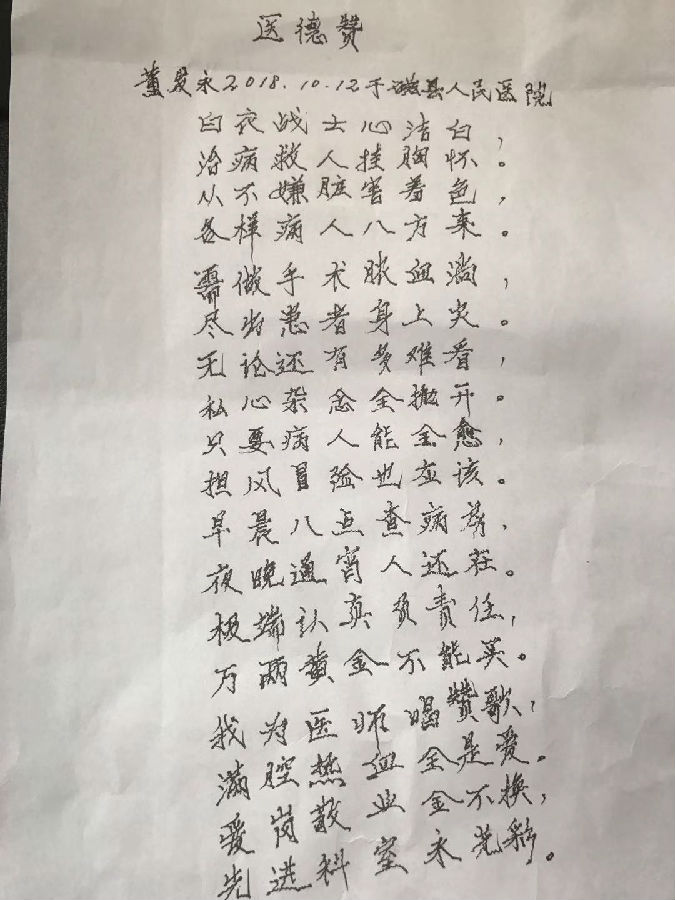 医德赞
董发永2018.10.12于磁县人民医院
白衣战士心洁白，
治病救人挂胸怀。
从不嫌脏害羞色，
各样病人八方来。
需做手术脓血淌，
尽当患者身上灾。
无论还有多难看，
私心杂念全撇开。
只要病人能全愈，
担风冒险也应该。
早晨八点查病房，
夜晚通宵人还在。
极端认真负责任，
万两黄金不能买。
我为医师唱赞歌，
满腔热血全是爱。
爱岗敬业金不换，
先进科室永光彩。